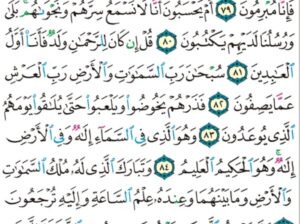 فَإِنَّا مُبْرِمُونَ ٧٩ أَمْ يَحْسَبُونَ أَنَّا لَا نَسْمَعُ سِرَّهُمْ وَنَجْوَىٰهُمۚ بَلَىٰ
وَرُسُلُنَا لَدَيْهِمْ يَكْتُبُونَ ٨٠ قُلْ إِن كَانَ لِلرَّحْمَـٰنِ وَلَدٌ فَأَنَا۠ أَوَّلُ
الْعَـٰبِدِينَ ٨١ سُبْحَـٰنَ رَبِّ السَّمَـٰوَٰتِ وَالْأَرْضِ رَبِّ الْعَرْشِ
عَمَّا يَصِفُونَ ٨٢ فَذَرْهُمْ يَخُوضُوا وَيَلْعَبُوا حَتَّىٰ يُلَـٰقُوا يَوْمَهُمُ
الَّذِي يُوعَدُونَ ٨٣ وَهُوَ الَّذِي فِي السَّمَآءِ إِلَـٰهٌ وَفِي الْأَرْضِ
إِلَـٰهٌۚ وَهُوَ الْحَكِيمُ الْعَلِيمُ ٨٤ وَتَبَارَكَ الَّذِي لَهُۥ مُلْكُ السَّمَـٰوَٰتِ
وَالْأَرْضِ وَمَا بَيْنَهُمَا وَعِندَهُۥ عِلْمُ السَّاعَةِ وَإِلَيْهِ تُرْجَعُونَ